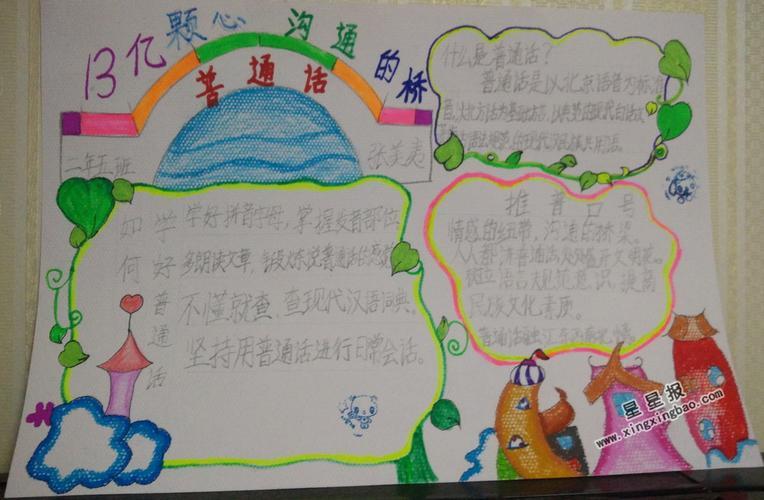 13亿颗心沟通的桥
普通话
二年五班
什么是普通话?
普通话是以北京语音为标准
音,以北方话为基础方言,以典范的现代白话文
著作为语法规范的现代汉民族共用语。
如何学好普通话
学好拼音字母,掌握发音部位
多朗读文章,锻炼说普通话的感觉
不懂就查、查现代汉语词典。
坚持用普通话进行日常会话。
推普口号
情感的纽带,沟通的桥梁。
人人都讲普通话,处处盛开文明花。
树立语言规范意识,提高
民族文化素质。
普通话融江东西南北情。
星星报
www.xingxingbao.com